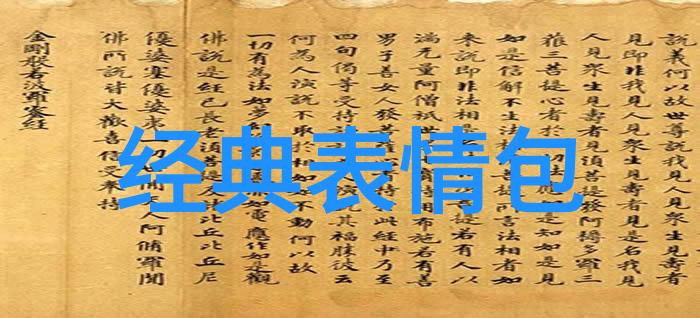 經典表情包
說義何以故世尊說我見人見眾生見壽者
見即非我見人見眾生見壽者是名我見
人見眾生見壽者須菩提發阿耨多羅三
藐三菩提心者於切法應如是知如是見
如是信解不生法相須菩提所言法相者如
來說即非法相是提若有人以
滿无量阿僧祇世持用布施若有善
男子善女人發菩持此經乃至
四句偈等受持演說其福勝彼云
何為人演說不取於相如如不動何以故
一切有為法如夢如電應作如是觀
佛說是經已長老須菩提及比丘比丘尼
優婆塞優婆夷一切間天人阿脩羅聞
佛所說皆大歡喜信受奉持
金剛般若波羅蜜經